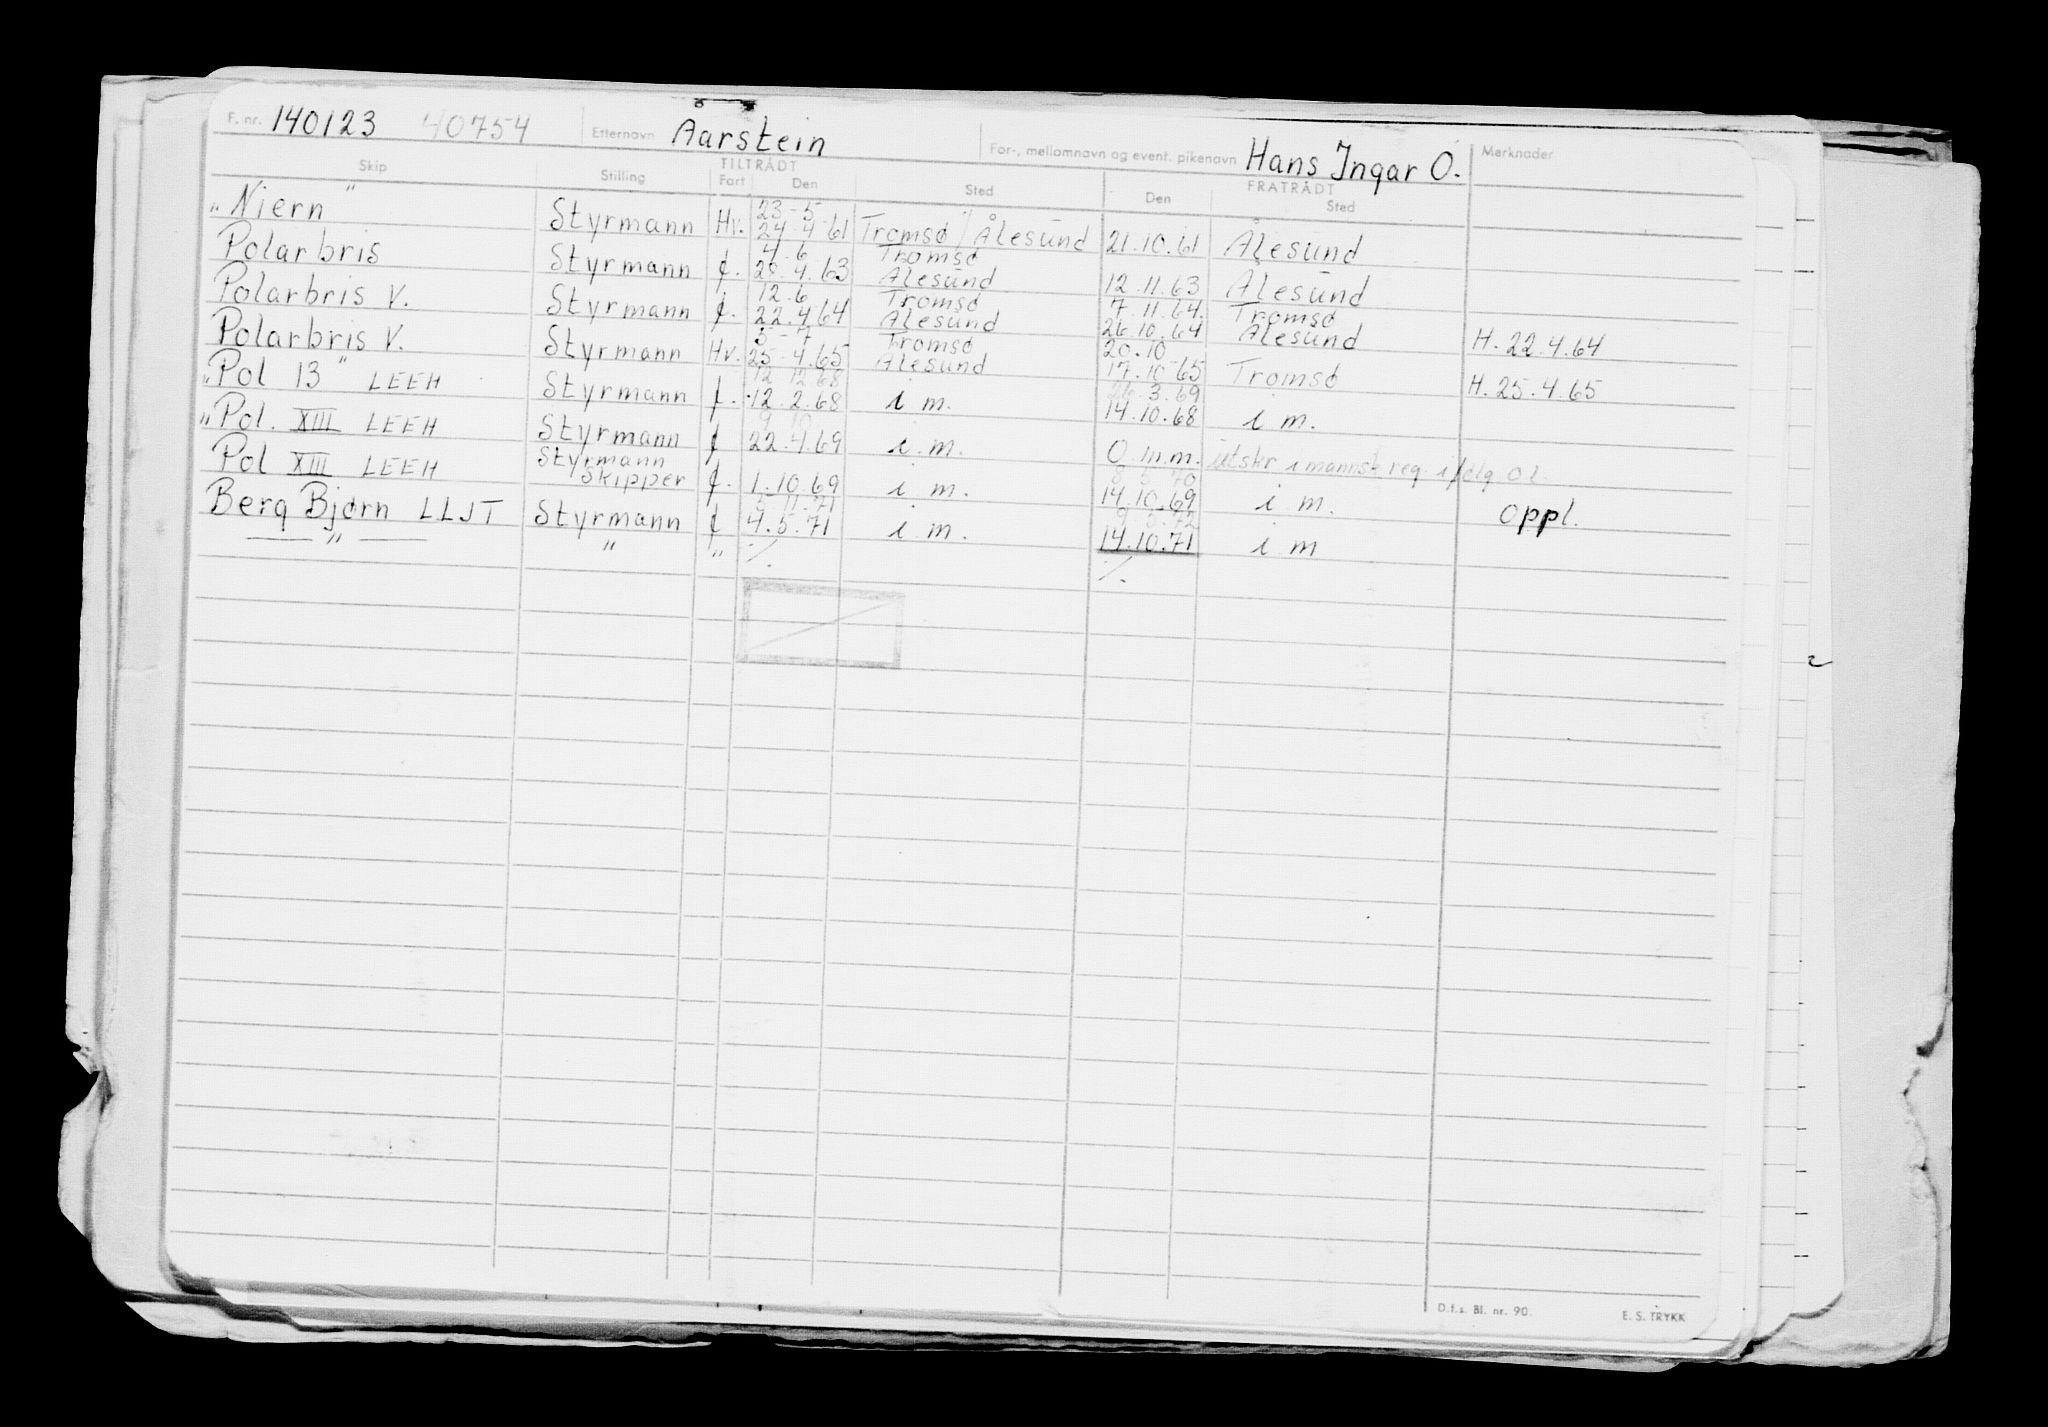 F. nr. 140123 40754 Etternavn Aarstein For-, mellomnavn og event. pikenavn Hans Ingar O. Merknader
Skip Stilling TILTRÅDT Fart Den Sted FRATRÅDT Den Sted
23-5
„Njern" Styrmann Hv. 24-4-61 Tromsø/Ålesund 21.10.61 Ålesund
4.6 Tromsø
Polarbris Styrmann f. 20.4.63 Ålesund 12.11.63 Ålesund
12.6 Tromsø 7.11.64. Tromsø
Polarbris V. Styrmann f. 22.4.64 Ålesund 26.10.64 Ålesund H. 22.4.64
5-7 Tromsø 20.10
Polarbris V. Styrmann Hv. 25-4.65 Ålesund 17.10-65 Tromsø H. 25.4.65
12 12 68 26.3.69
„Pol 13" LEEH Styrmann f. 12.2.68 i m. 14.10.68 i m.
9 10
„Pol. XIII LEEH Styrmann f 22.4.69 i m. O.m.m. utskr i mannsk reg. ifølg O l.
Styrmann 8 5 70
Pol XIII LEEH Skipper f. 1.10.69 i m. 14.10.69 i m. Oppl.
5 11.71 9 5.72
Berg Bjørn LLJT Styrmann f 4.5.71 i m. 14.10.71 i m
— " — " " ./. ./.
D.f.s. Bl. nr. 90. E. S. TRYKK